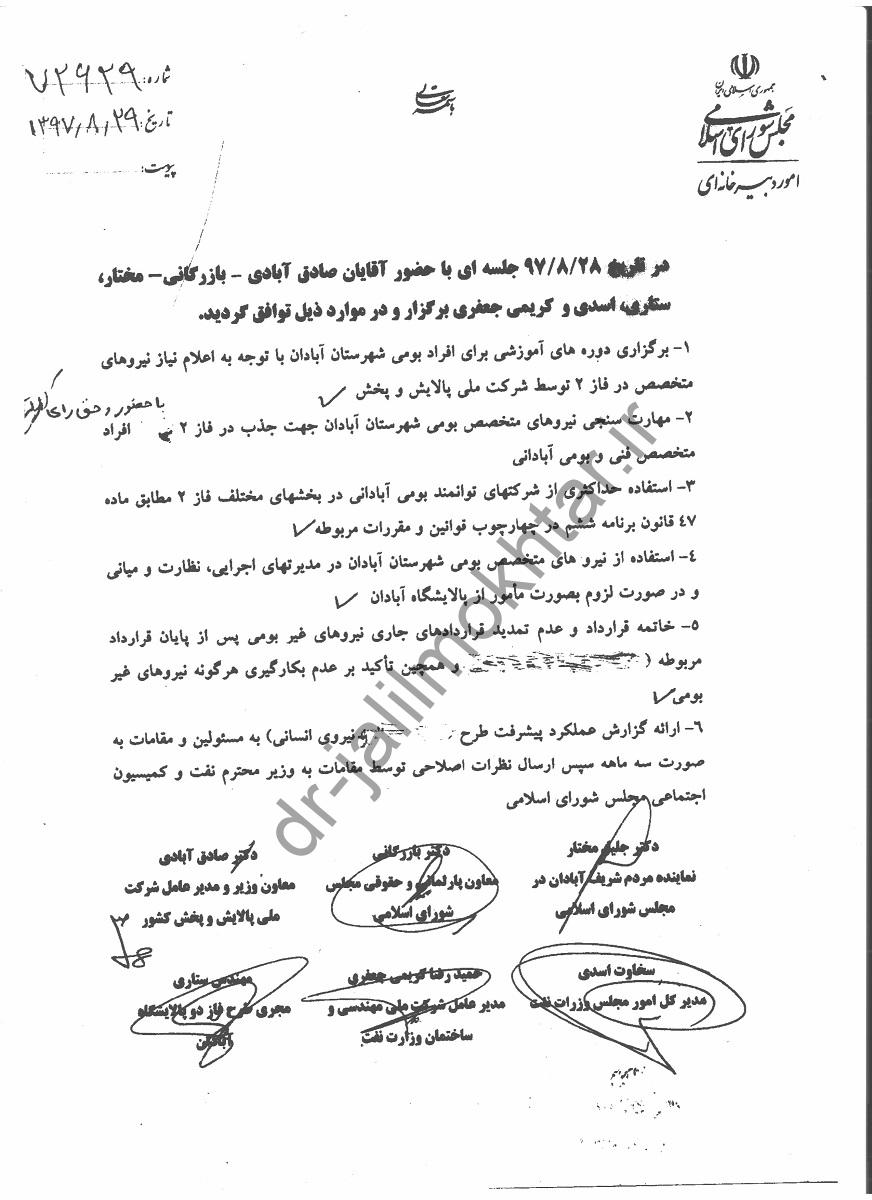 جمهوری اسلامی ایران
مجلس شورای اسلامی
امور دبیرخانه‌ای
باسمه تعالی
شماره: ۷۲۹۲۹
تاریخ: ۱۳۹۷/۸/۲۹
پیوست:
در تاریخ ۹۷/۸/۲۸ جلسه ای با حضور آقایان صادق آبادی - بازرگانی- مختار،
ستاری، اسدی و کریمی جعفری برگزار و در موارد ذیل توافق گردید.
۱- برگزاری دوره های آموزشی برای افراد بومی شهرستان آبادان با توجه به اعلام نیاز نیروهای
متخصص در فاز ۲ توسط شرکت ملی پالایش و پخش
با حضور و حق رای
۲- مهارت سنجی نیروهای متخصص بومی شهرستان آبادان جهت جذب در فاز ۲ افراد
متخصص فنی و بومی آبادانی
۳- استفاده حداکثری از شرکتهای توانمند بومی آبادانی در بخشهای مختلف فاز ۲ مطابق ماده
۴۷ قانون برنامه ششم در چهارچوب قوانین و مقررات مربوطه
۴- استفاده از نیرو های متخصص بومی شهرستان آبادان در مدیرتهای اجرایی، نظارت و میانی
و در صورت لزوم بصورت مأمور از پالایشگاه آبادان
۵- خاتمه قرارداد و عدم تمدید قراردادهای جاری نیروهای غیر بومی پس از پایان قرارداد
مربوطه ( و همچنین تأکید بر عدم بکارگیری هرگونه نیروهای غیر
بومی
۶- ارائه گزارش عملکرد پیشرفت طرح نیروی انسانی) به مسئولین و مقامات به
صورت سه ماهه سپس ارسال نظرات اصلاحی توسط مقامات به وزیر محترم نفت و کمیسیون
اجتماعی مجلس شورای اسلامی
دکتر جلیل مختار
نماینده مردم شریف آبادان در
مجلس شورای اسلامی
دکتر بازرگانی
معاون پارلمانی و حقوقی مجلس
شورای اسلامی
دکتر صادق آبادی
معاون وزیر و مدیر عامل شرکت
ملی پالایش و پخش کشور
سخاوت اسدی
مدیر کل امور مجلس وزرات نفت
حمید رضا کریمی جعفری
مدیر عامل شرکت ملی مهندسی و
ساختمان وزارت نفت
مهندس ستاری
مجری طرح فاز دو پالایشگاه
آبادان
dr-jalilmokhtar.ir